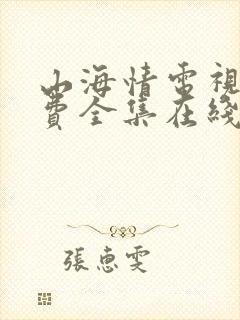 山海情電視
費全集在綫
張惠雯